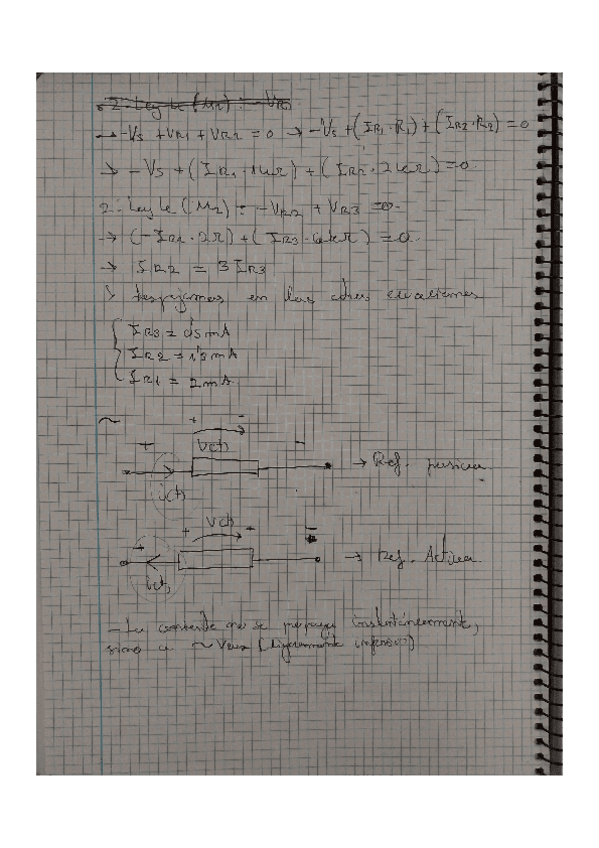 → -Vs + VR1 + VR2 = 0 → -Vs + (IR1 · R1) + (IR2 · R2) = 0
→ -Vs + (IR1 · 1kΩ) + (IR2 · 2kΩ) = 0
(M2) : -VR2 + VR3 = 0
→ (-IR2 · 2Ω) + (IR3 · 6kΩ) = 0
→ IR2 = 3IR3
en las otras ecuaciones
IR3 = 0'5 mA
IR2 = 1'5 mA
IR1 = 2 mA
~
+ -
+ V(t) -
→ Ref. pasiva
i(t)
V(t)
+ -
+ -
→ Ref. Activa
i(t)
- La corriente no se propaga instantáneamente,
sino a ~ Vluz (ligeramente inferior)